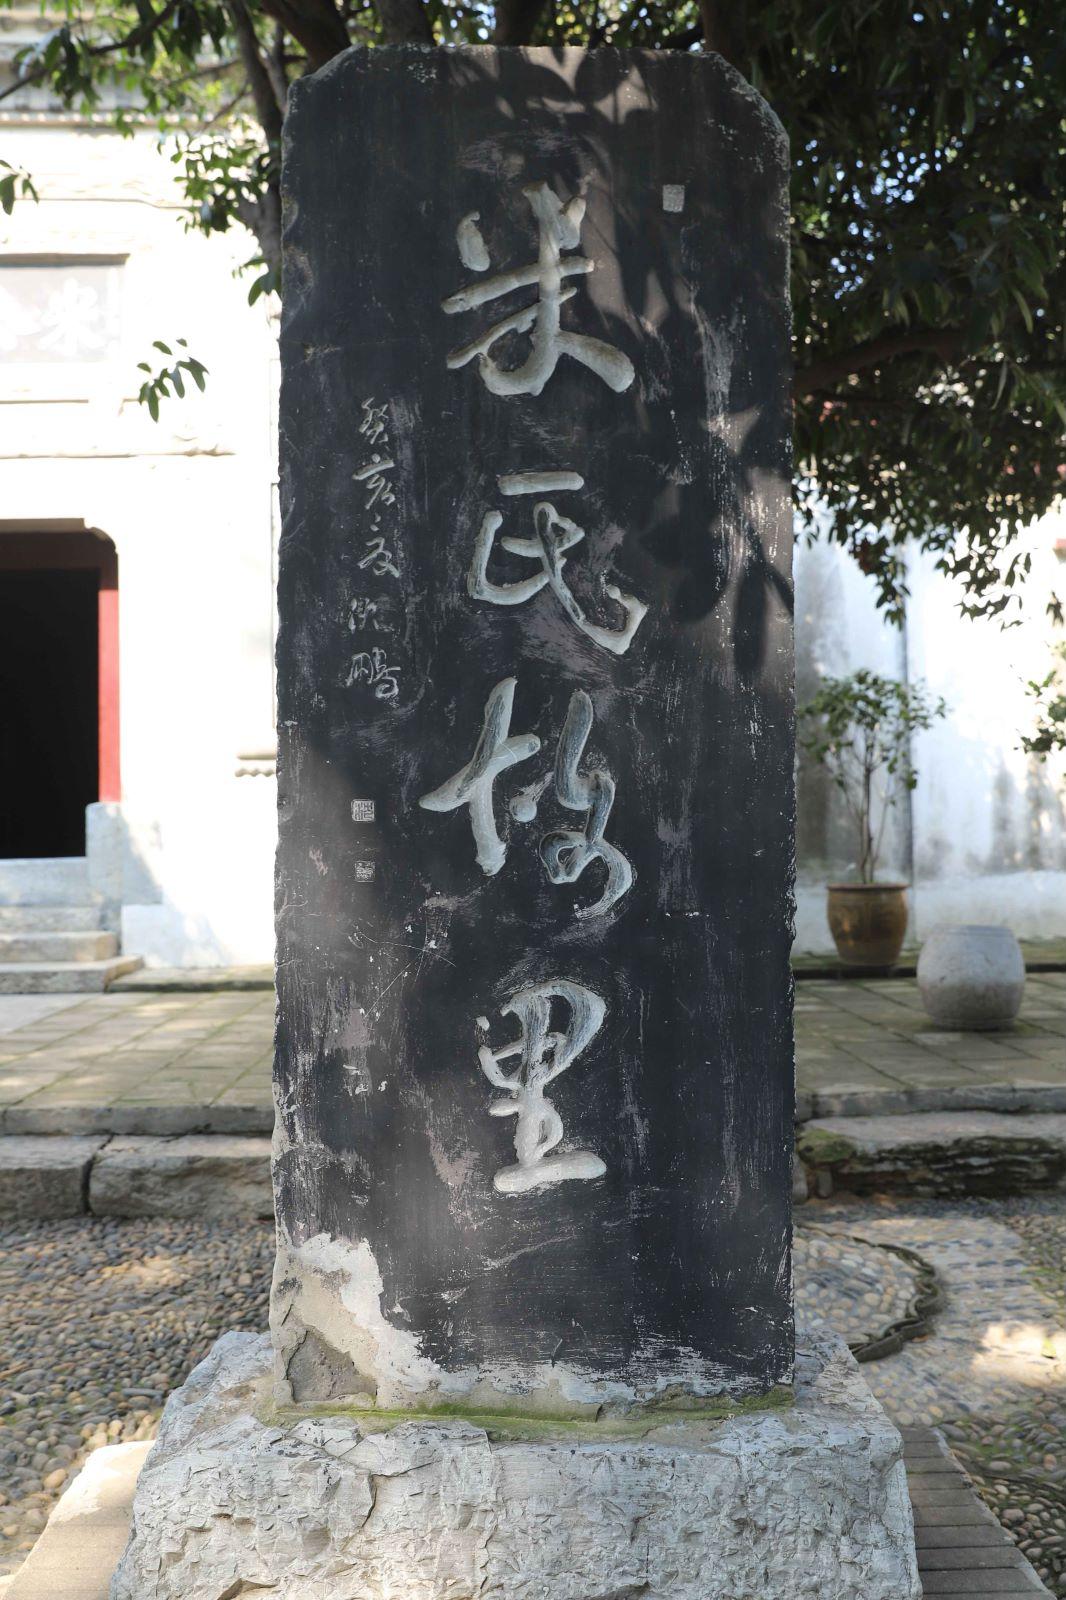 米氏故里
癸亥夏沈鹏
米公